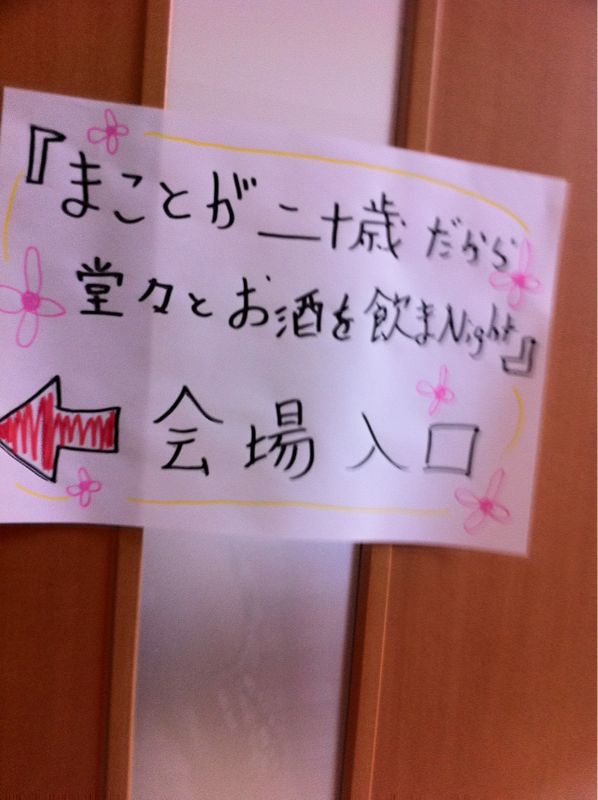 『まことが二十歳だから
堂々とお酒を飲まNight』
会場入口